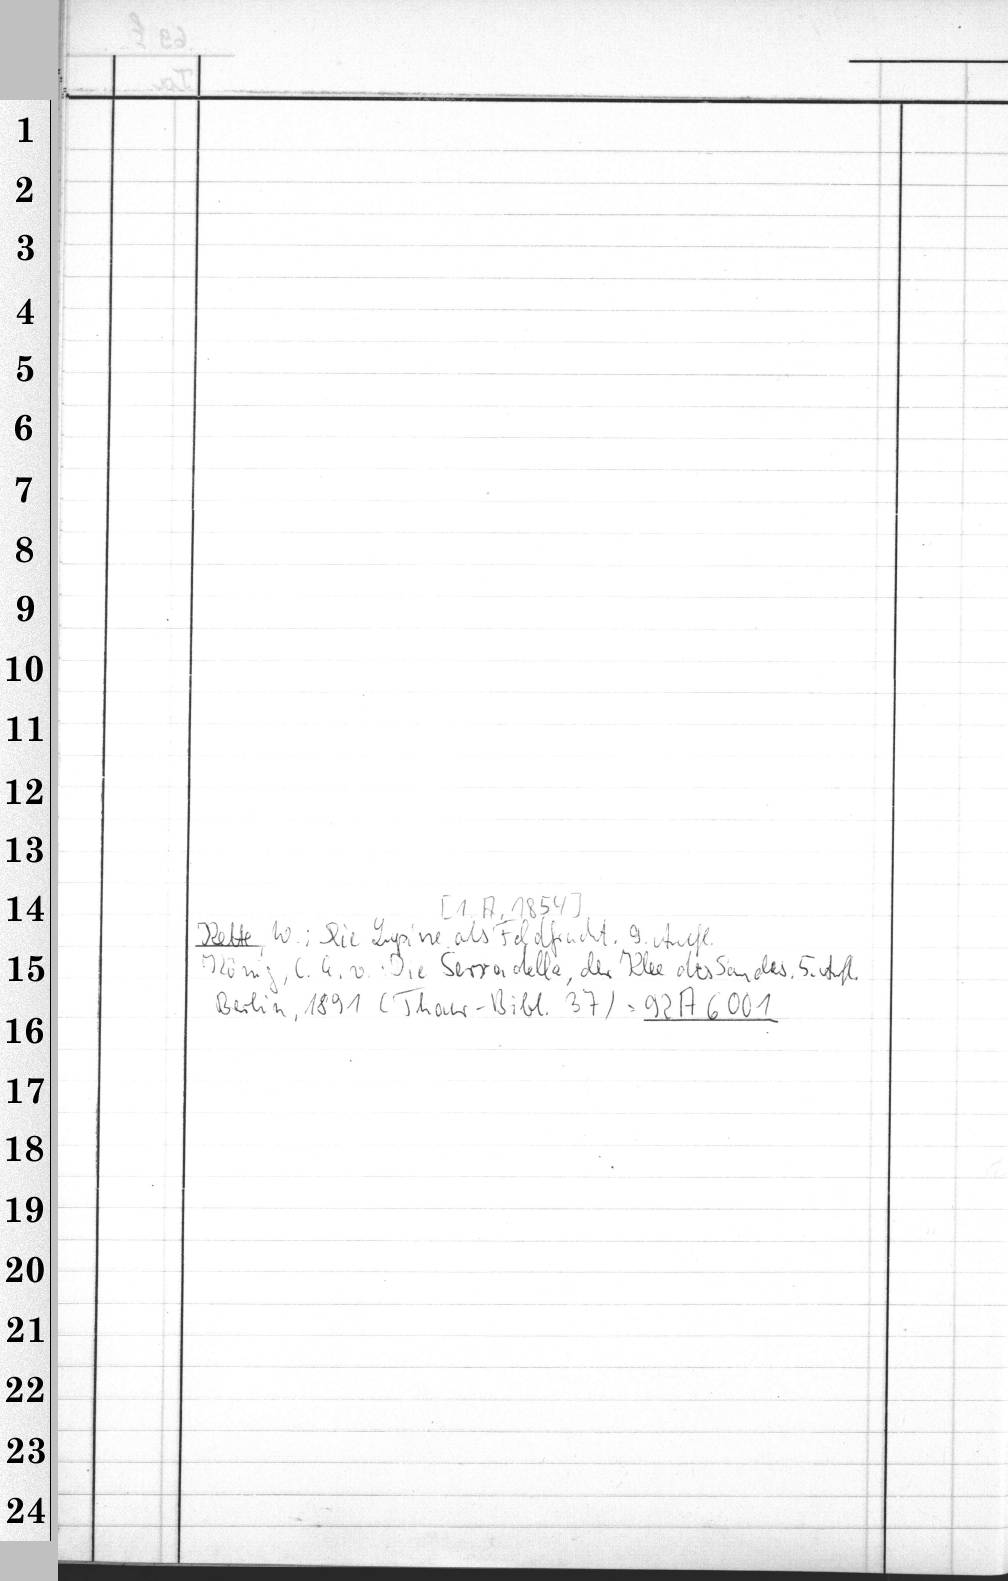 1
2
3
4
5
6
7
8
9
10
11
12
13
14
15
16
17
18
19
20
21
22
23
24
[1. A. 1854]
Kette, W.: Die Lupine als Feldfrucht. 9. Aufl.
König, C. G. v. Die Serradella, der Klee des Sandes. 5. Aufl.
Berlin, 1891 (Thaer-Bibl. 37) = 92 A 6001